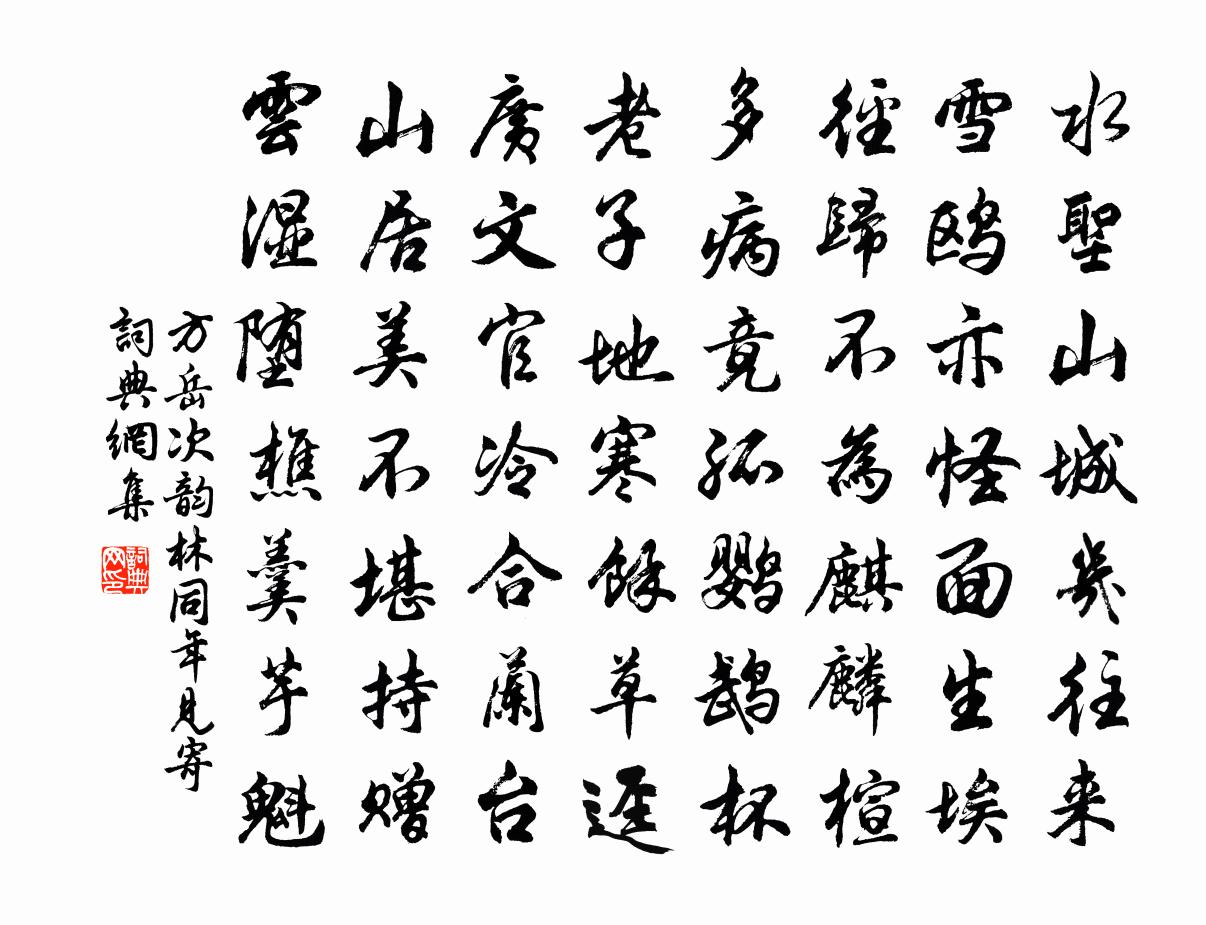 水聖山城幾往来
雪鸥亦怪面生埃
徑歸不為麒麟楦
多病竟孤鹦鹉杯
老子地寒餘草逕
廣文官冷合蘭台
山居美不堪持赠
雲湿堕樵羹芋魁
方岳次韵林同年見寄
詞典網集
詞典网印